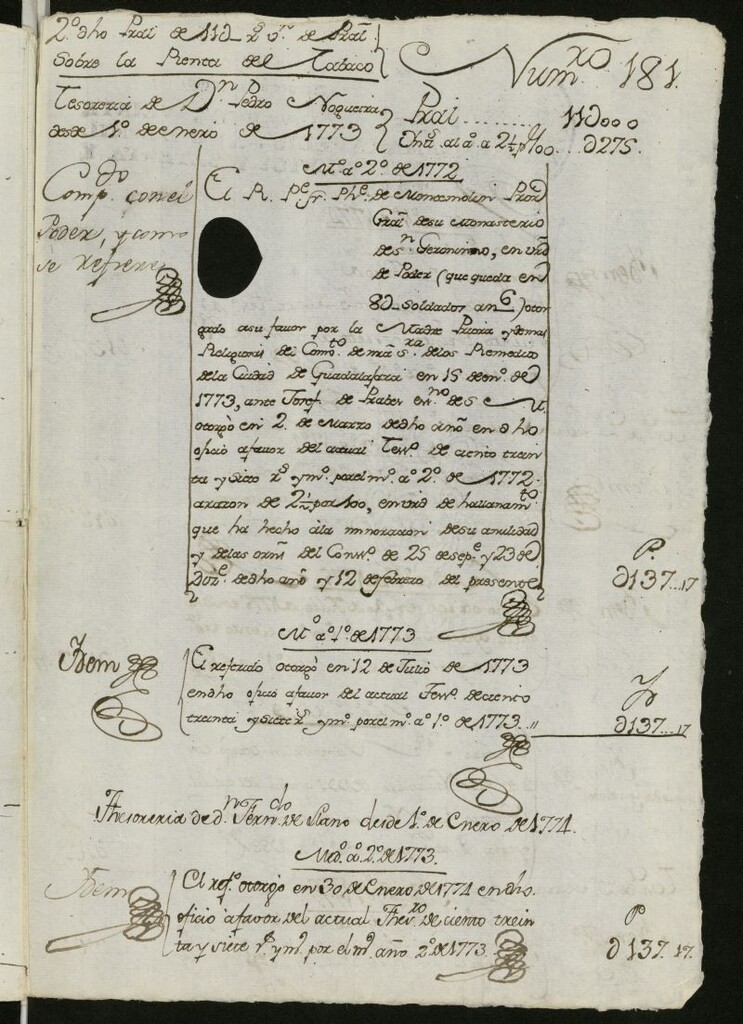 2º. dho Pral de 11D rs. vn. de Pral.
Sobre la Renta del Tabaco
Numro. 181.
Tesoreria de Dn. Pedro Nogueira
desde 1º. de enero de 1773
Pral ....... 11D000
al a. a 2½ p%00 ... D275.
Mº. aº 2º. de 1772
Compdo. con el
Poder, y como
se refiere
El R. Pe. fr. Phe. de Montemolin Pror
Gral. de su Monasterio
de Sn. Geronimo, en vrd
de Poder (que queda en
8D Soldados an 6) otor
gado a su favor por la Madre Priora y demas
Religiosas del Comto. de nra. Sra. de los Remedios
de la Ciudad de Guadalaxara en 15 de eno. de
1773, ante Josef. de en.no de S. M.
otorgó en 2. de Marzo de dho año en dho
oficio a favor del actual Teso. de ciento trein
ta y siete rs. y mo. por el mo. aº 2º. de 1772.
a razon de 2½ por 100, en vrd de hallanamto.
que ha hecho à la minoracion de su anulidad
y de las orns. del Conso. de 25 de sepe. y 23 de
Dize. de dho año y 12 de febrero del presente
P.
D137..17
Mº. aº 1º. de 1773
Idem
El referido otorgó en 12 de Julio de 1773
en dho oficio a favor del actual Teso. de ciento
treinta y siete rs. y mo. por el mo. aº 1º. de 1773..
D137...17
Thesoreria de dn. Ferndo. de Llano desde 1º. de Enero de 1774.
Medº. aº 2º. de 1773.
Idem
El refº. otorgó en 30 de Enero de 1774 en dho.
oficio a favor del actual Thesro. de ciento trein
ta y siete rs. y mo. por el mo. año 2º. de 1773.
P
D137. 17.